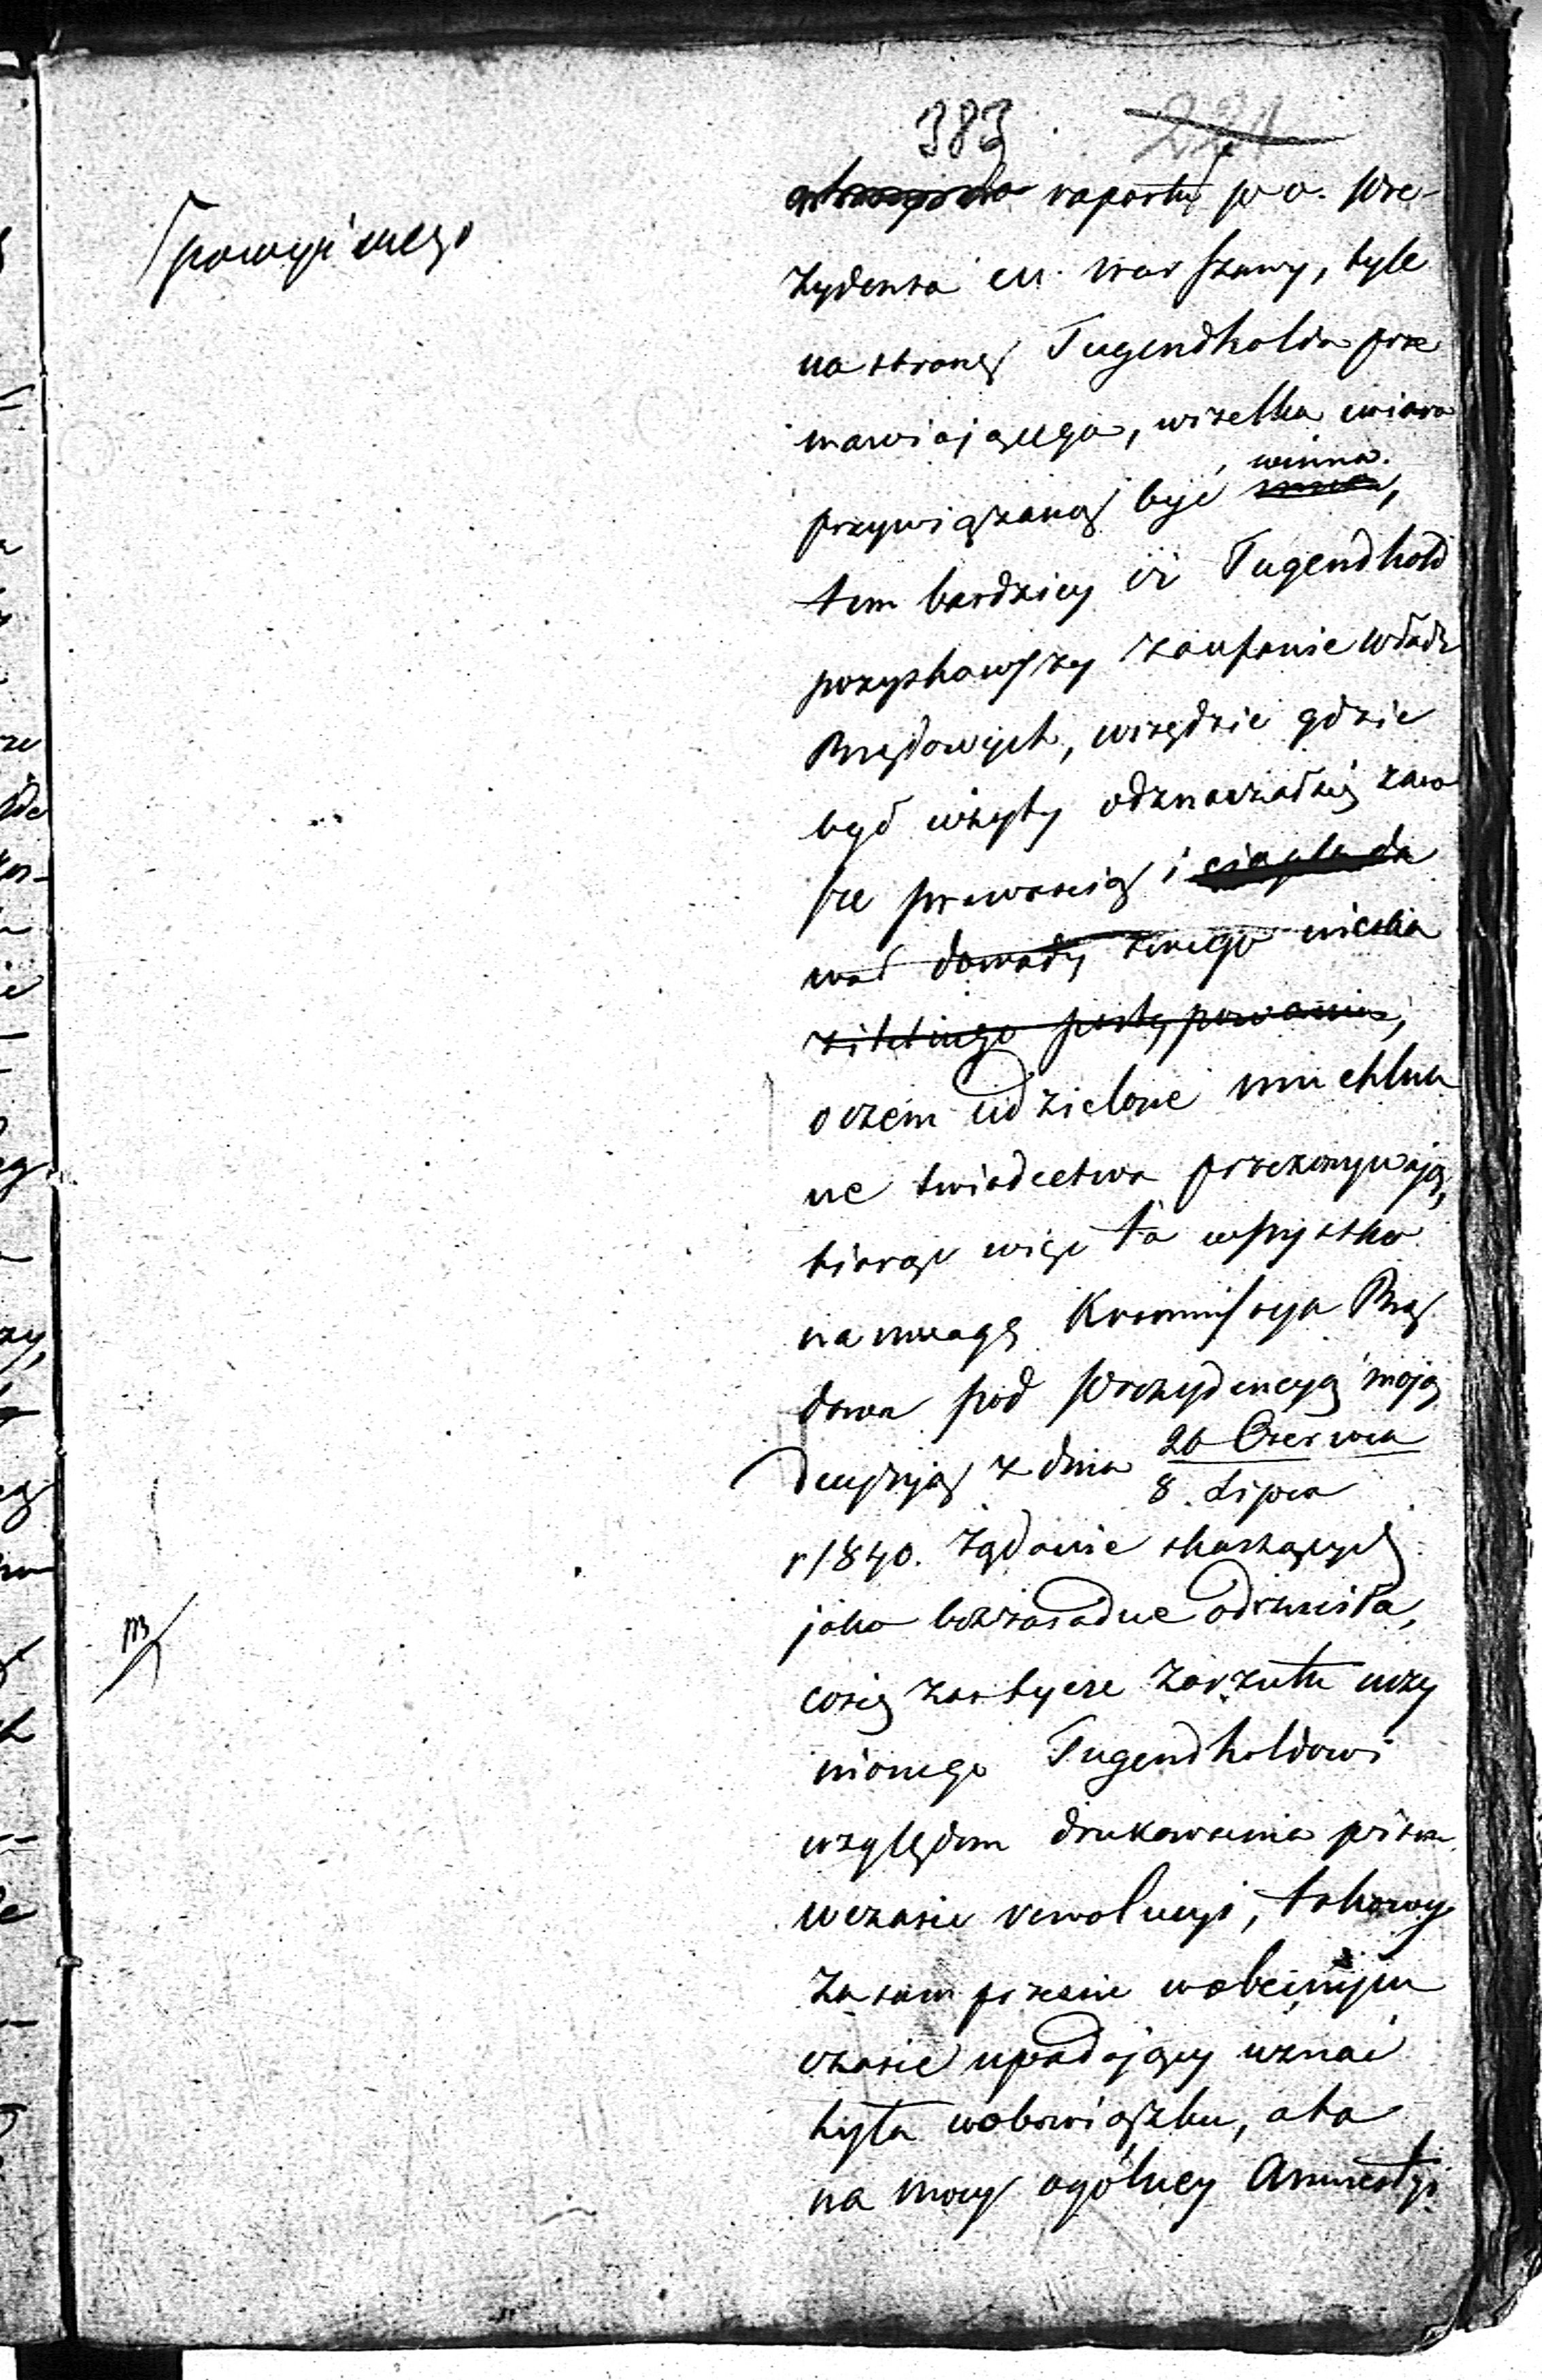 383 221
powyższego
raportu p. o. Pre-
zydenta M. Warszawy, tyle
na stronę Tugendholda prze
mawiającego, wszelka wiara
winna.
przywiązaną być
tem bardziey iż Tugendhold
pozyskawszy zaufanie władz
Rządowych, wszędzie gdzie
był użyty odznaczał się zaw
sze prawością i ciągle da
wał dowody swego nieska
zitelnego postępowania,
o czem udzielone mu chlub
ne świadectwa przekonywają,
biorąc więc to wszystko
na uwagę Kommissya Rzą
dowa pod Prezydencyą moją
decyzyją z dnia 26 Czerwca
8. Lipca
r 1840. żądanie skarżących
jako bezzasadne odrzuciła,
co się zaś tycze zarzutu uczy
nionego Tugendholdowi
względem drukowania pism
w czasie rewolucyi, takowy
za sam przez się w obecnym
czasie upadający uznać
była w obowiązku, a to
na mocy ogólney Amnestyi